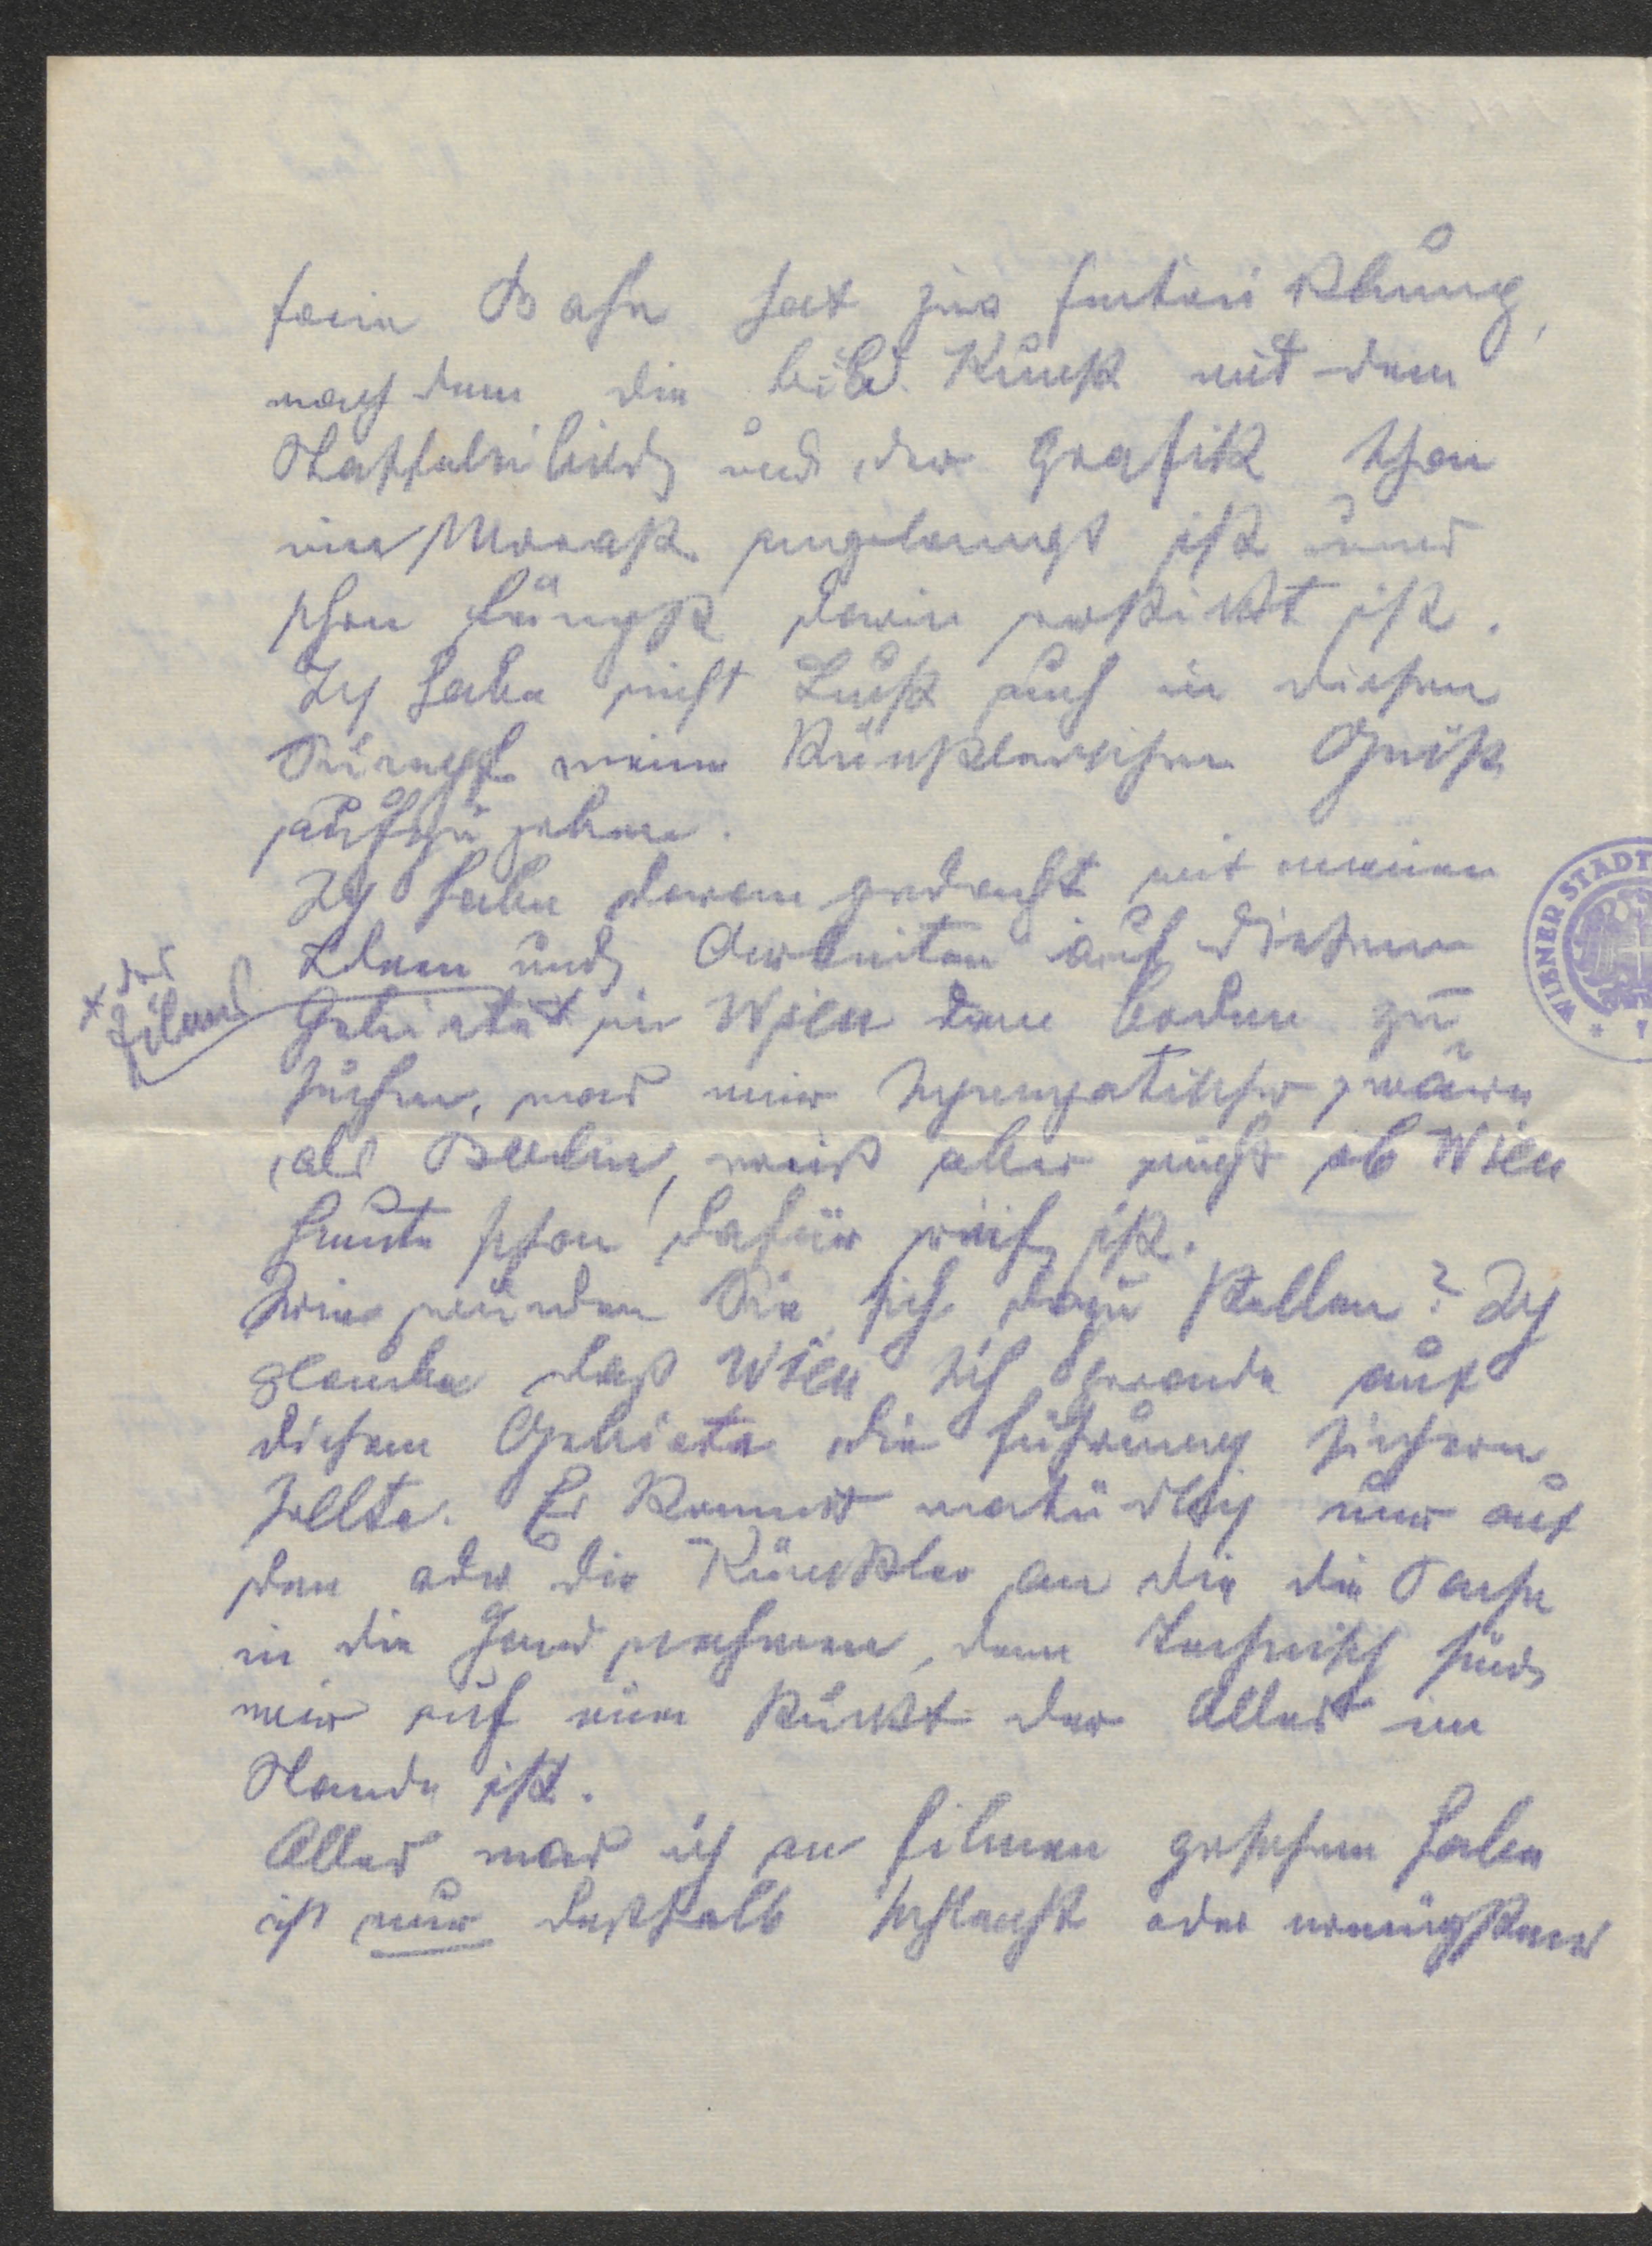 freie Bahn hat zur Entwicklung,
nachdem die bild. Kunst mit dem
Staffeleibild und der Grafik schon
im Morast angelangt ist und
schon längst darin erstickt ist.
Ich habe nicht Lust auch in diesem
Sumpf meinen künstlerischen Geist
aufzugeben.
Ich habe daran gedacht mit meinen
Ideen und Arbeiten auf diesem
x des
Films
Gebiete x in Wien den boden zu
suchen, was mir sympatischer wäre
als Berlin, weiß aber nicht ob Wien
heute schon dafür reif ist.
Wie würden Sie sich dazu stellen? Ich
glaube daß Wien sich gerade auf
diesem Gebiete die Führung sichern
sollte. Es kommt natürlich nur auf
den oder die Künstler an die die Sache
in die Hand nehmen, denn technisch sind
wir auf einem Punkt der Alles im
Stande ist.
Alles was ich an Filmen gesehen habe
ist nur deßhalb schlecht oder wenigstens
WIENER STADT